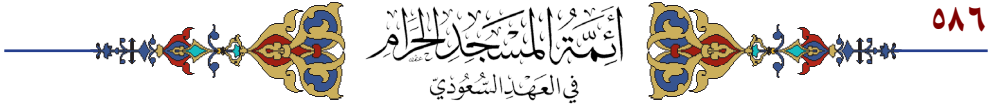 ٥٨٦
أَئِمَّةُ المَسْجِدِ الحَرَامِ
فِي العَهْدِ السُّعُودِيّ